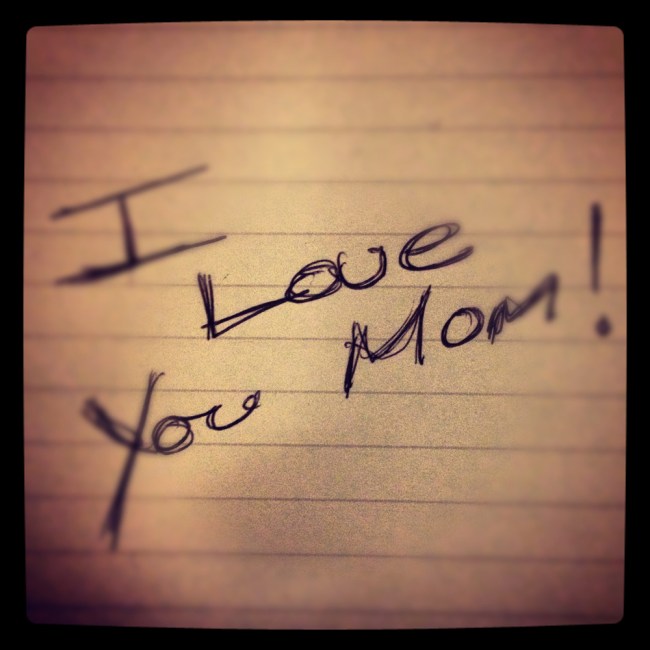 I
Love
You Mom!